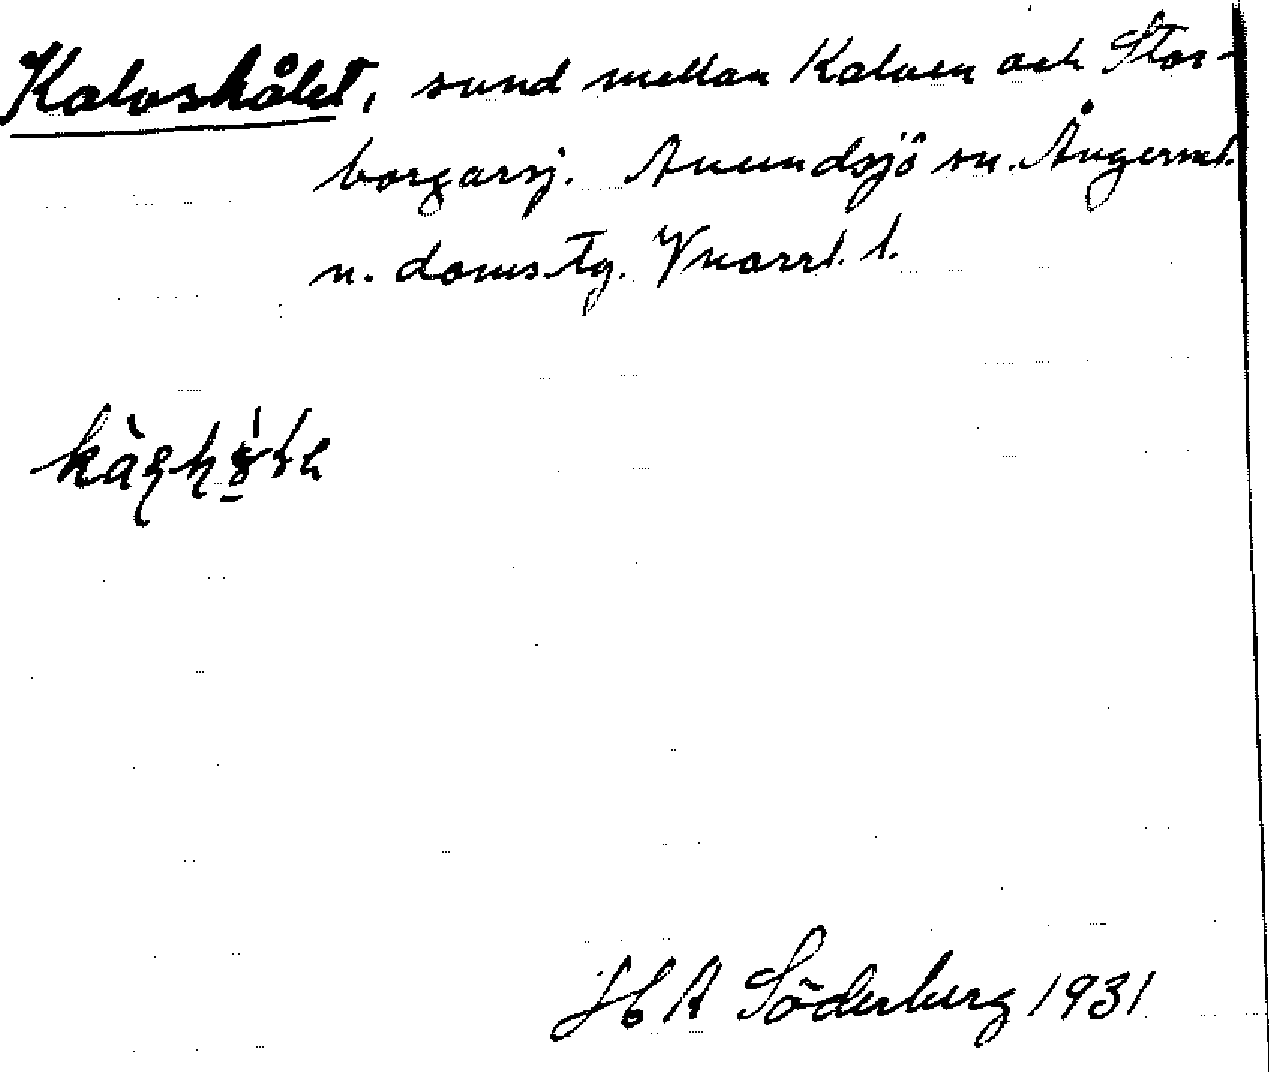 Kalvshålet, sund mellan Kalven och Stor-
borgarsj. Anundsjö sn. Ångerml.
n. doms.tg. Vnorrl. l.
H A Söderberg 1931